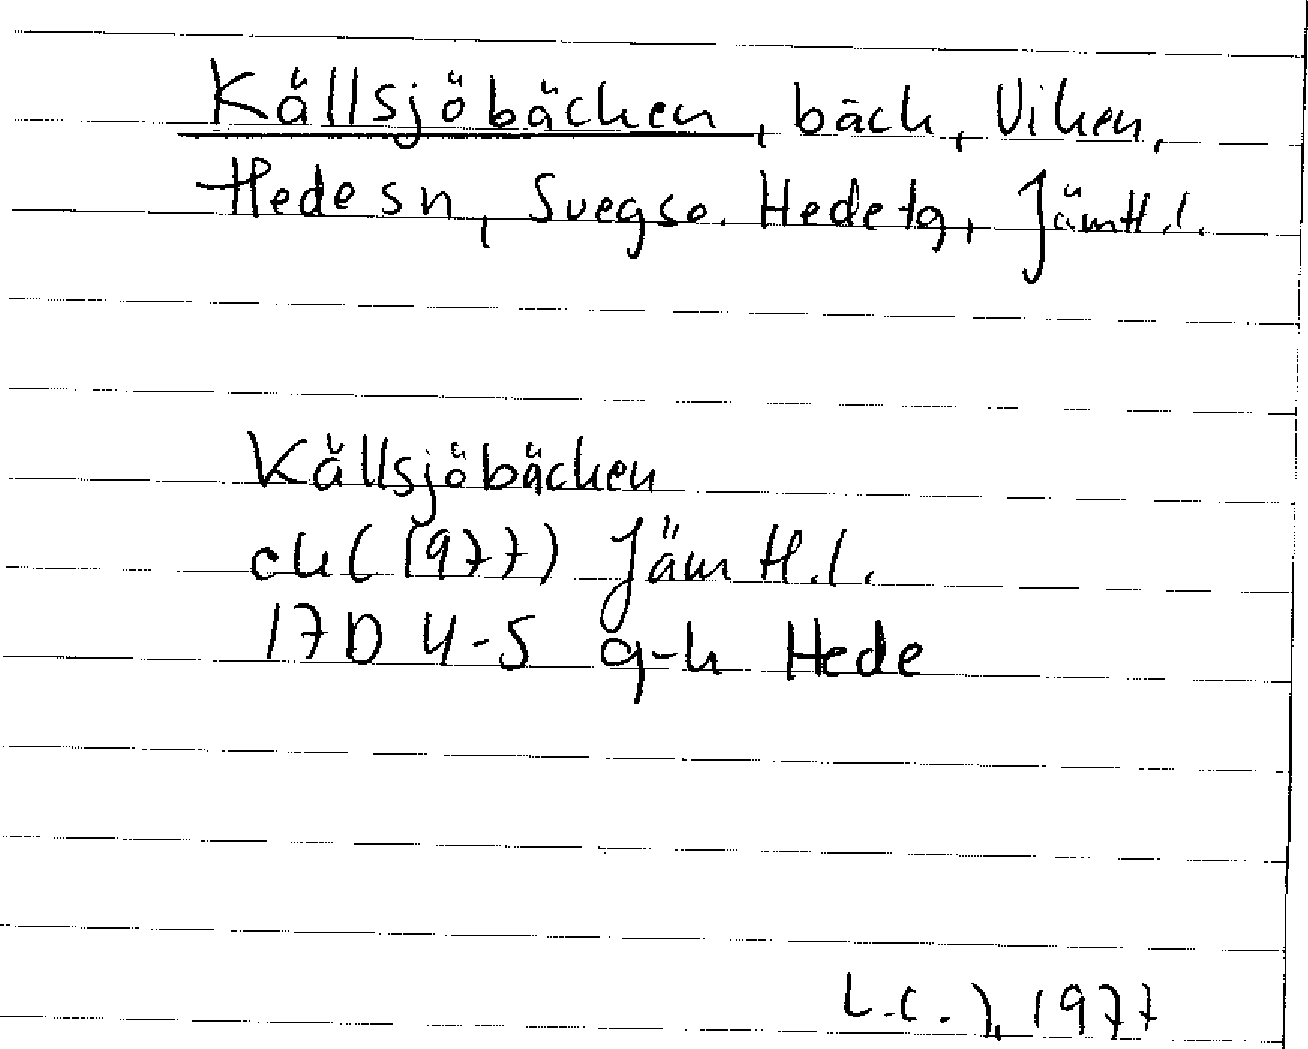 Källsjöbäcken, bäck, Viken,
Hede sn, Svegs o. Hede tg, Jämtl. l.
Källsjöbäcken
ek (1977) Jämtl. l.
17D 4-5 g-h Hede
L.C.J. 1977